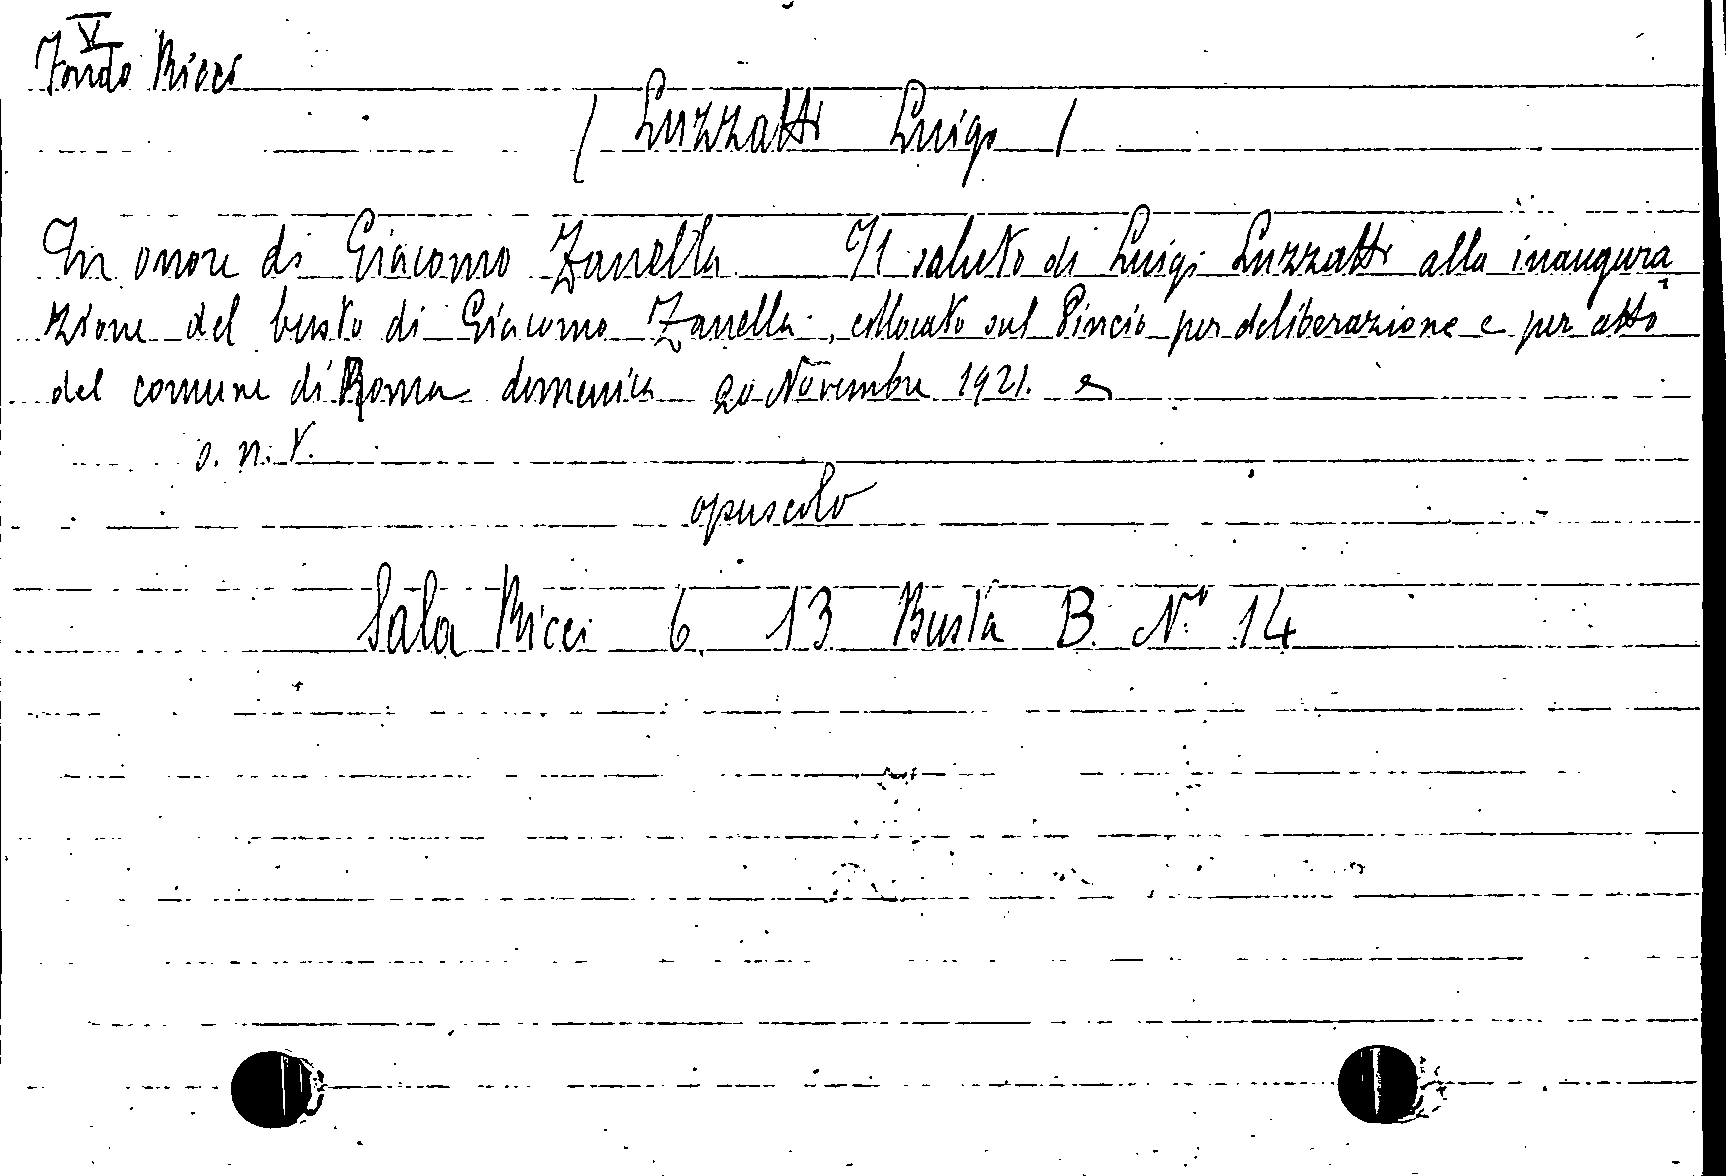 V
Fondo Ricci
( Luzzatti Luigi )
In onore di Giacomo Zanella Il saluto di Luigi Luzzatti alla inaugura
zione del busto di Giacomo Zanella, collocato sul Pincio per deliberazione e per atto
del comune di Roma domenica 20 Novembre 1921.
s. n. t.
opuscolo
Sala Ricci 6. 13 Busta B. N.° 14